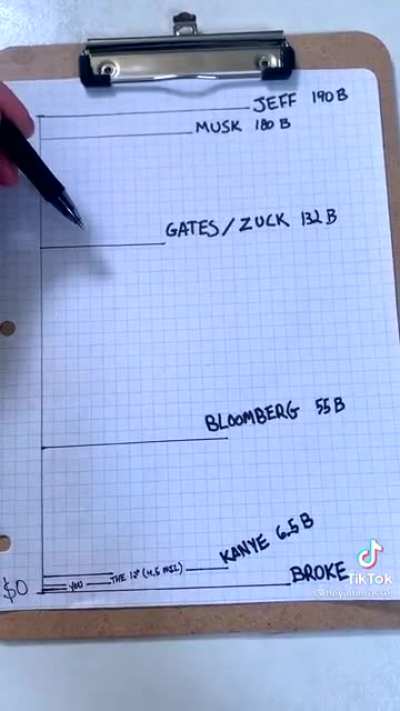 JEFF 190 B
MUSK 180 B
GATES / ZUCK 132 B
BLOOMBERG 55 B
KANYE 6.5 B
THE 1%
YOU
BROKE
$0
TikTok